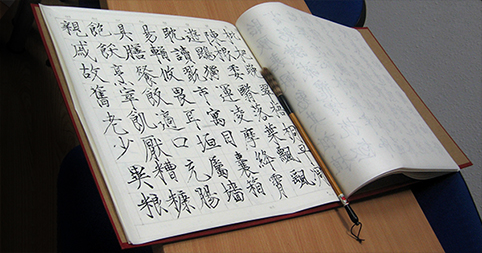 陳根委翳落葉飄颻
遊鵾獨運凌摩絳霄
耽讀翫市寓目囊箱
易輶攸畏屬耳垣牆
具膳餐飯適口充腸
飽飫烹宰飢厭糟糠
親戚故舊老少異糧